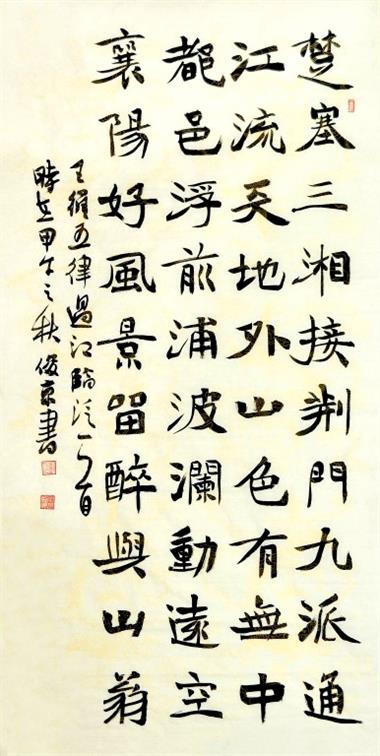 楚塞三湘接荆門九派通
江流天地外山色有無中
都邑浮前浦波瀾動遠空
襄陽好風景留醉與山翁
王維五律過江臨泛一首
時在甲午之秋俊京書